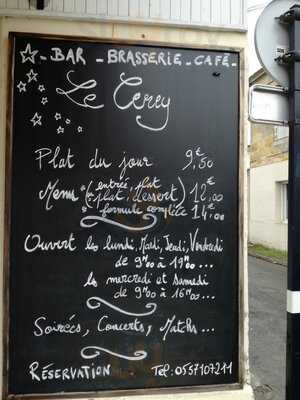 BAR - BRASSERIE - CAFÉ -
Le Cerey
Plat du jour 9,€50
Menu (entrée, plat
ou plat, dessert) 12,€00
formule complète 14,€00
Ouvert les lundi, Mardi, Jeudi, Vendredi
de 9H00 à 19H00 ...
les mercredi et samedi
de 9H00 à 16H00 ...
Soirées, Concerts, Matchs ...
RÉSERVATION Tel: 0557107211